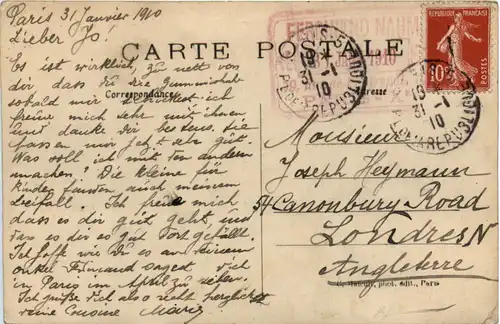 Paris 31 Januar 1910
Lieber Jo!
Es ist wirklich zu nett von
dir dass du die Gummischuhe
sobald mir schickest ich
freue mich sehr mit ihnen
und danke dir bestens. Sie
passen mir jetzt sehr gut.
Was soll ich mit den andern
machen? Die kleine für
Kinder fanden auch meinen
Beifall. Ich freue mich
dass es dir gut geht und
das es dir so gut dort gefällt.
Ich hoffe wie Du es an
onkel Ferdinand sagest dich
in Paris im April zu sehen.
Ich grüße dich also recht herzlichst
deine Cousine Marie
CARTE POSTALE
Correspondance
Adresse
FERDINAND NAHM
1910
REPUBLIQUE FRANÇAISE
10
POSTES
PARIS
31 -1
10
PL. DE LA REPUBLIQUE
Monsieur
Joseph Heymann
54 Canonbury Road
Londres N
Angleterre
phot. édit., Paris